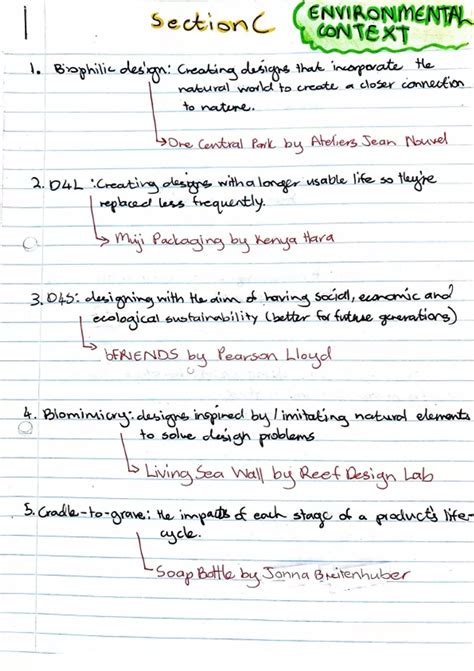 1
Section C
ENVIRONMENTAL
CONTEXT
1. Biophilic design: Creating designs that incorporate the
natural world to create a closer connection
to nature.
One Central Park by Ateliers Jean Nouvel
2. D4L : Creating designs with a longer usable life so they're
replaced less frequently.
Muji Packaging by Kenya Hara
3. D4S: designing with the aim of having social, economic and
ecological sustainability (better for future generations)
bFRIENDS by Pearson Lloyd
4. Biomimicry: designs inspired by / imitating natural elements
to solve design problems
Living Sea Wall by Reef Design Lab
5. Cradle-to-grave: the impacts of each stage of a product's life-
cycle.
Soap Bottle by Jonna Breitenhuber